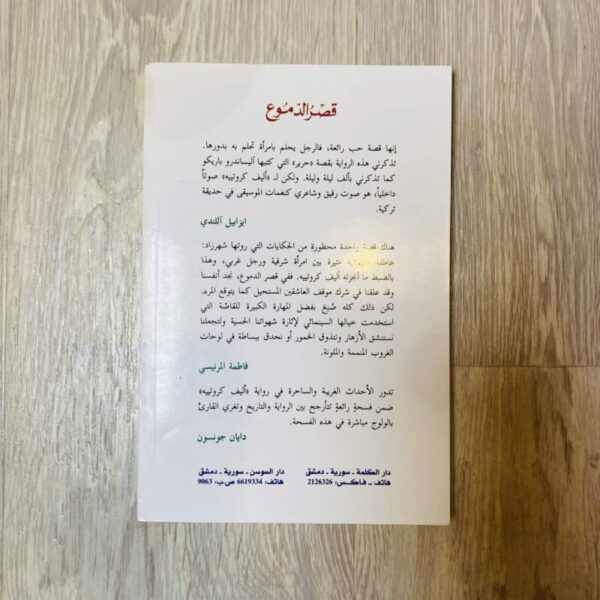 قصر الدّموع
إنها قصة حب رائعة، فالرجل يحلم بامرأة تحلم به بدورها.
تذكرني هذه الرواية بقصة «حرير» التي كتبها أليساندرو باريكو
كما تذكرني بألف ليلة وليلة. ولكن لـ «أليف كروتييه» صوتاً
داخلياً، هو صوت رقيق وشاعري كنغمات الموسيقى في حديقة
تركية.
ايزابيل آللندي
هناك قصة واحدة محظورة من الحكايات التي روتها شهرزاد:
مثيرة بين امرأة شرقية ورجل غربي، وهذا
بالضبط ما أنجزته أليف كروتييه. ففي قصر الدموع، نجد أنفسنا
وقد علقنا في شرك موقف العاشقين المستحيل كما يتوقع المرء.
لكن ذلك كله صُنِعَ بفضل المهارة الكبيرة للقاصّة التي
استخدمت خيالها السينمائي لإثارة شهواتنا الحسية ولتجعلنا
نستنشق الأزهار ونتذوق الخمور أو نحدق ببساطة في لوحات
الغروب المنمنمة والملونة.
فاطمة المرنيسي
تدور الأحداث الغريبة والساحرة في رواية «أليف كروتييه»
ضمن فسحةٍ رائعةٍ تتأرجح بين الرواية والتاريخ وتغري القارئ
بالولوج مباشرة في هذه الفسحة.
دايان جونسون
دار الكلمة ـ سورية ـ دمشق
هاتف ـ فاكس: 2126326
دار السوسن ـ سورية ـ دمشق
هاتف: 6619334 ص.ب: 9063